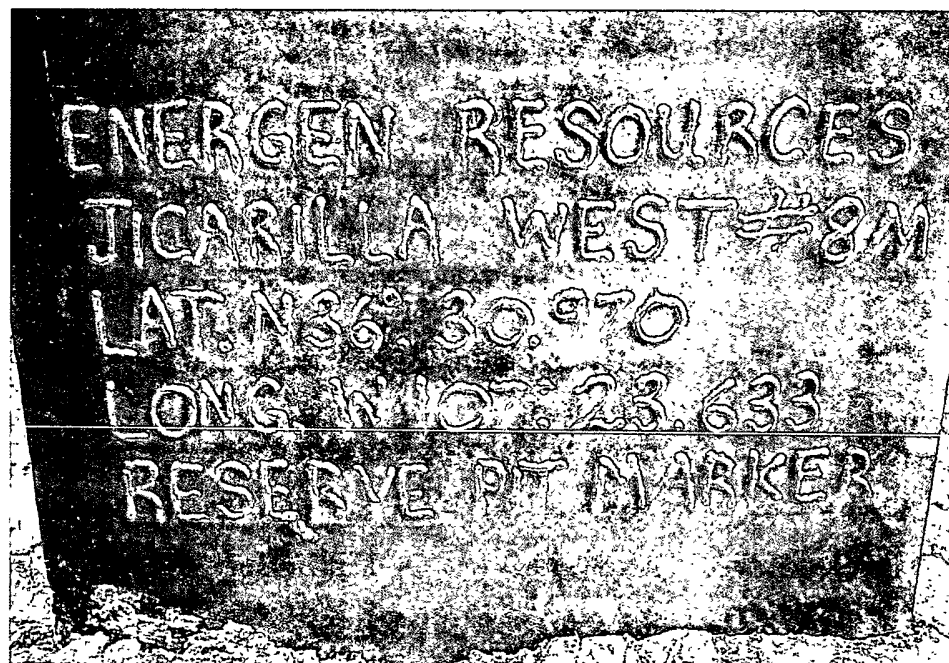 ENERGEN RESOURCES
JICARILLA WEST #8M
LAT. N 36°. 30. 970
LONG. W 107°. 23. 633
RESERVE PT MARKER